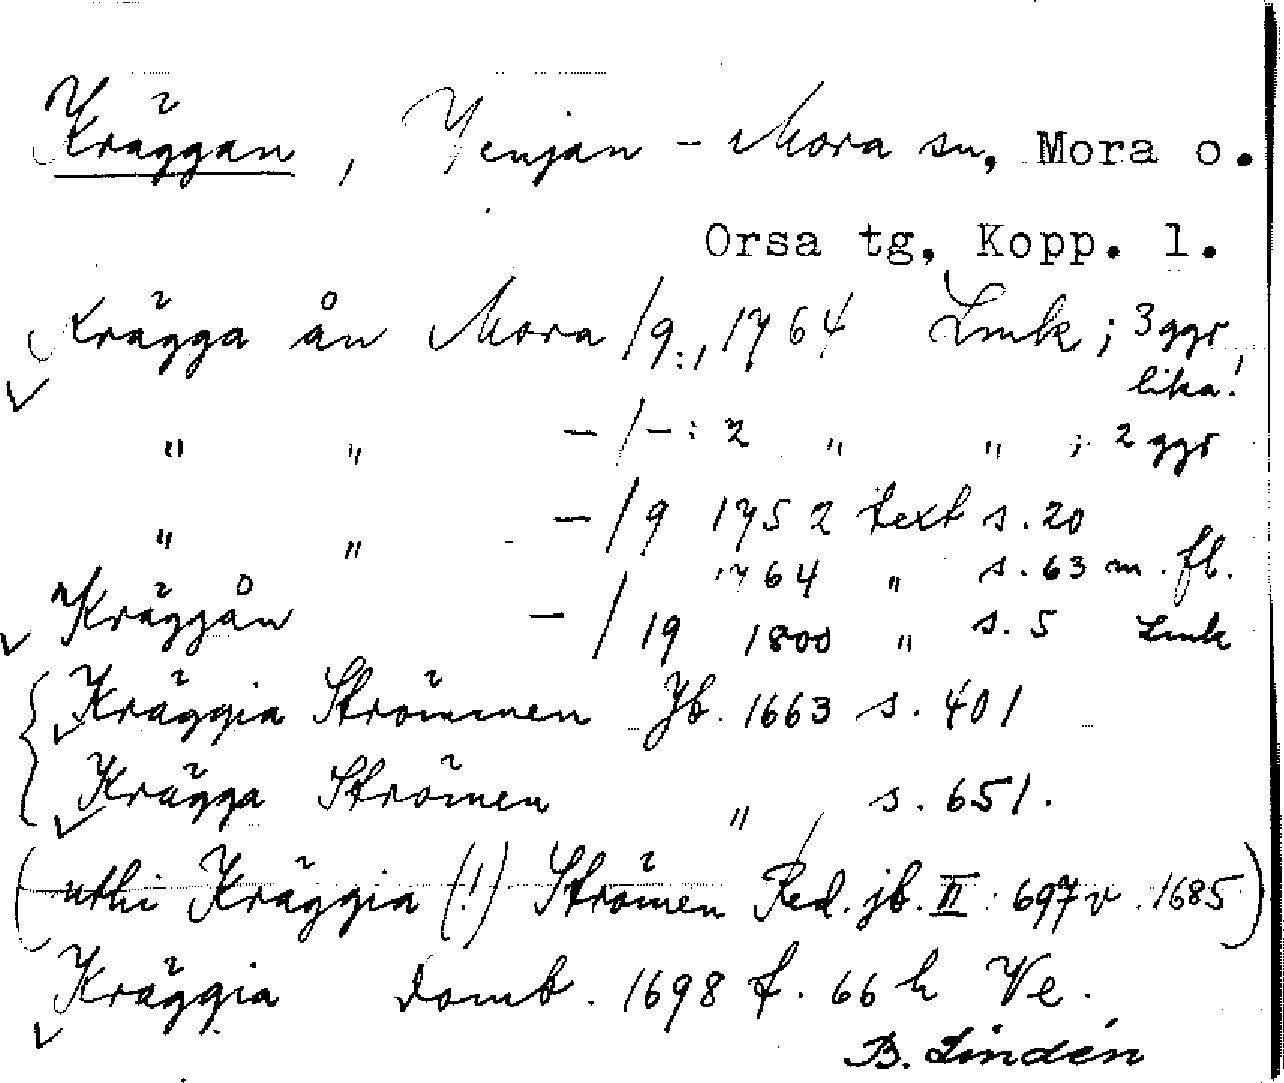 Kräggan, Venjan - Mora sn, Mora o.
Orsa tg, Kopp. l.
Krägga ån Mora /9:, 1764 Lmk; 3 ggr
lika!
" " - / - : 2 " " ; 2 ggr
" " - / 9 1752 text s. 20
1764 " s. 63 m. fl.
Kräggån - / 19 1800 " s. 5 Lmk
Kräggia Strömmen Jb. 1663 s. 401
Krägga Strömen " s. 651.
(uthi Kräggia (!) Strömen Red. jb. II: 697 v. 1685)
Kräggia Domb. 1698 f. 66 h Ve.
B. Lindén